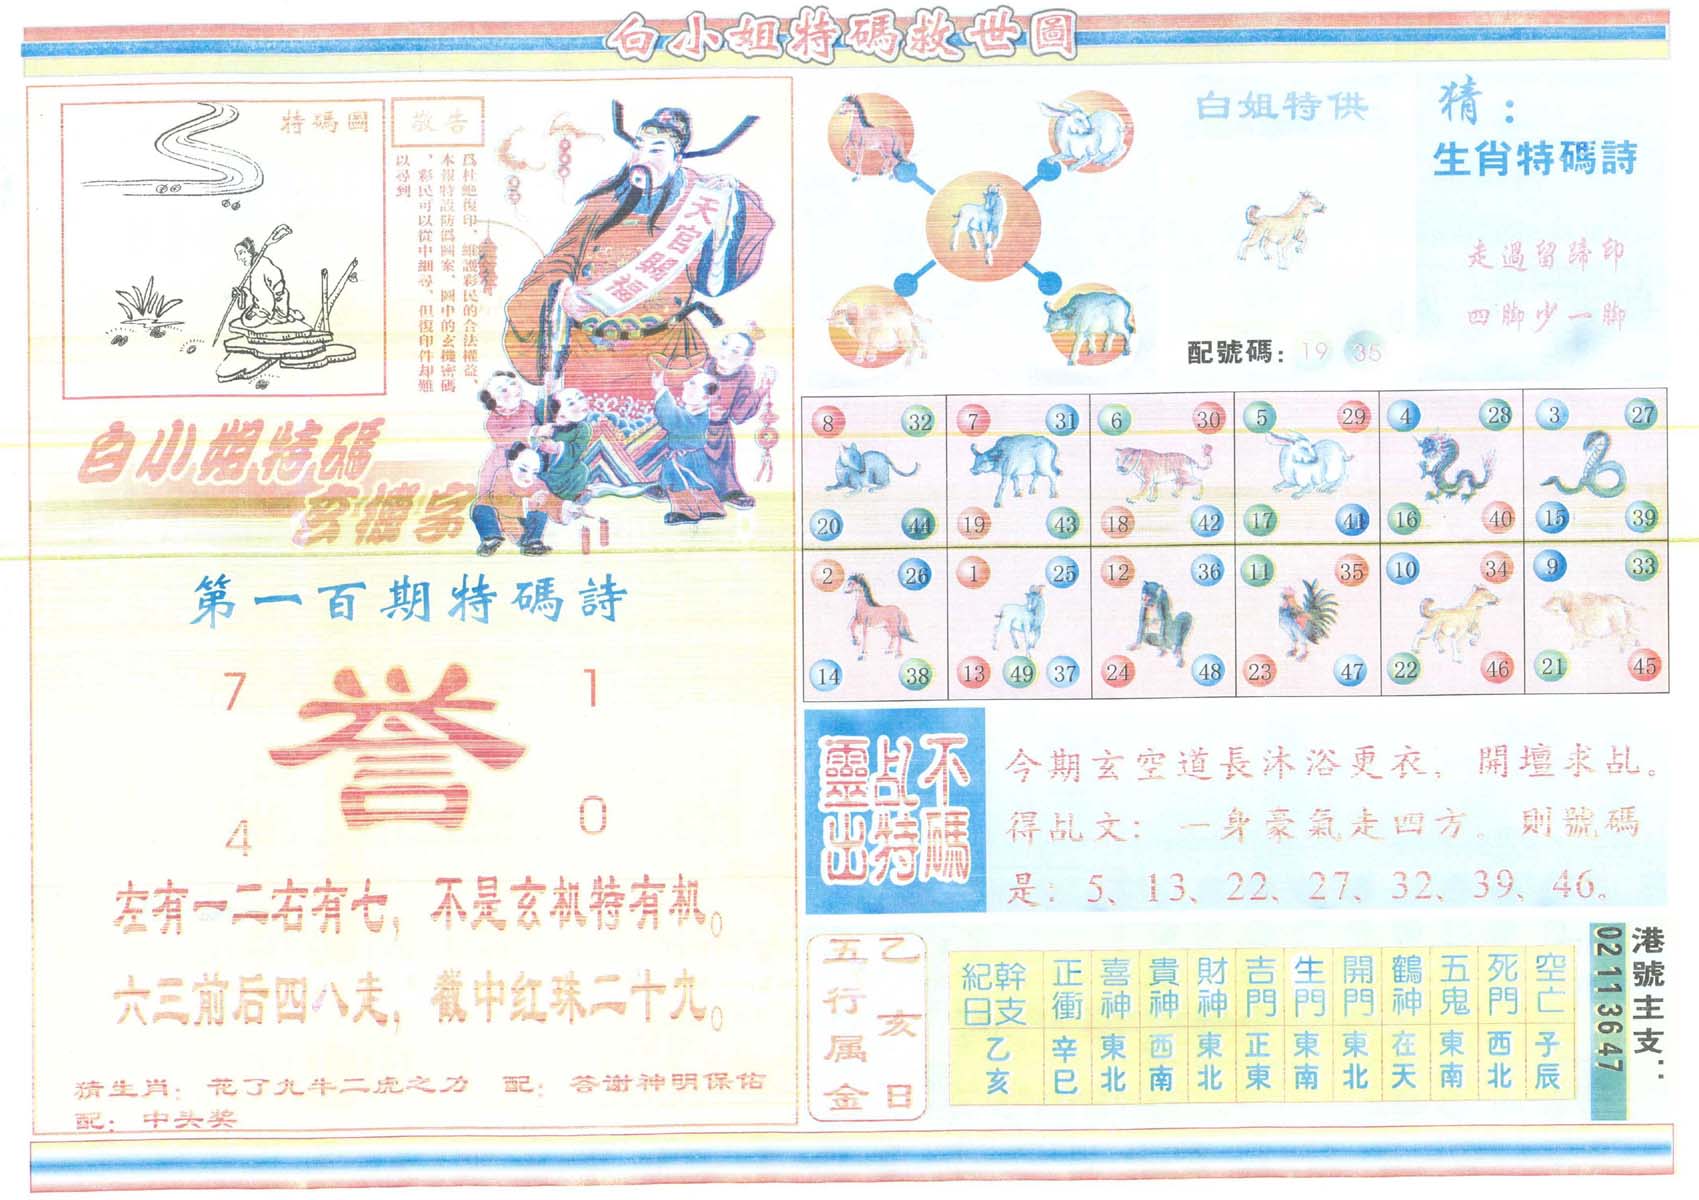 白小姐特碼救世圖
特碼圖
敬告
爲杜絶復印、維護彩民的合法權益、
本報特設防爲圖案、圖中的玄機密碼
，彩民可以從中細尋、但復印件却難
以尋到
天官賜福
白小姐特碼
玄機字
第一百期特碼詩
7 1
誉
4 0
左有一二右有七，不是玄机特有机。
六三前后四八走，截中红珠二十九。
猜生肖：花了九牛二虎之力 配：答谢神明保佑
配：中头奖
白姐特供
配號碼：19 35
猜：
生肖特碼詩
走過留蹄印
四脚少一脚
8 32 7 31 6 30 5 29 4 28 3 27
20 44 19 43 18 42 17 41 16 40 15 39
2 26 1 25 12 36 11 35 10 34 9 33
14 38 13 49 37 24 48 23 47 22 46 21 45
不碼
乩特
靈出
今期玄空道長沐浴更衣，開壇求乩。
得乩文：一身豪氣走四方。則號碼
是：5、13、22、27、32、39、46。
乙亥日
五行属金
紀日 幹支 正衝 喜神 貴神 財神 吉門 生門 開門 鶴神 五鬼 死門 空亡
乙亥 辛巳 東北 西南 東北 正東 東南 東北 在天 東南 西北 子辰
港號主支：
02 11 36 47